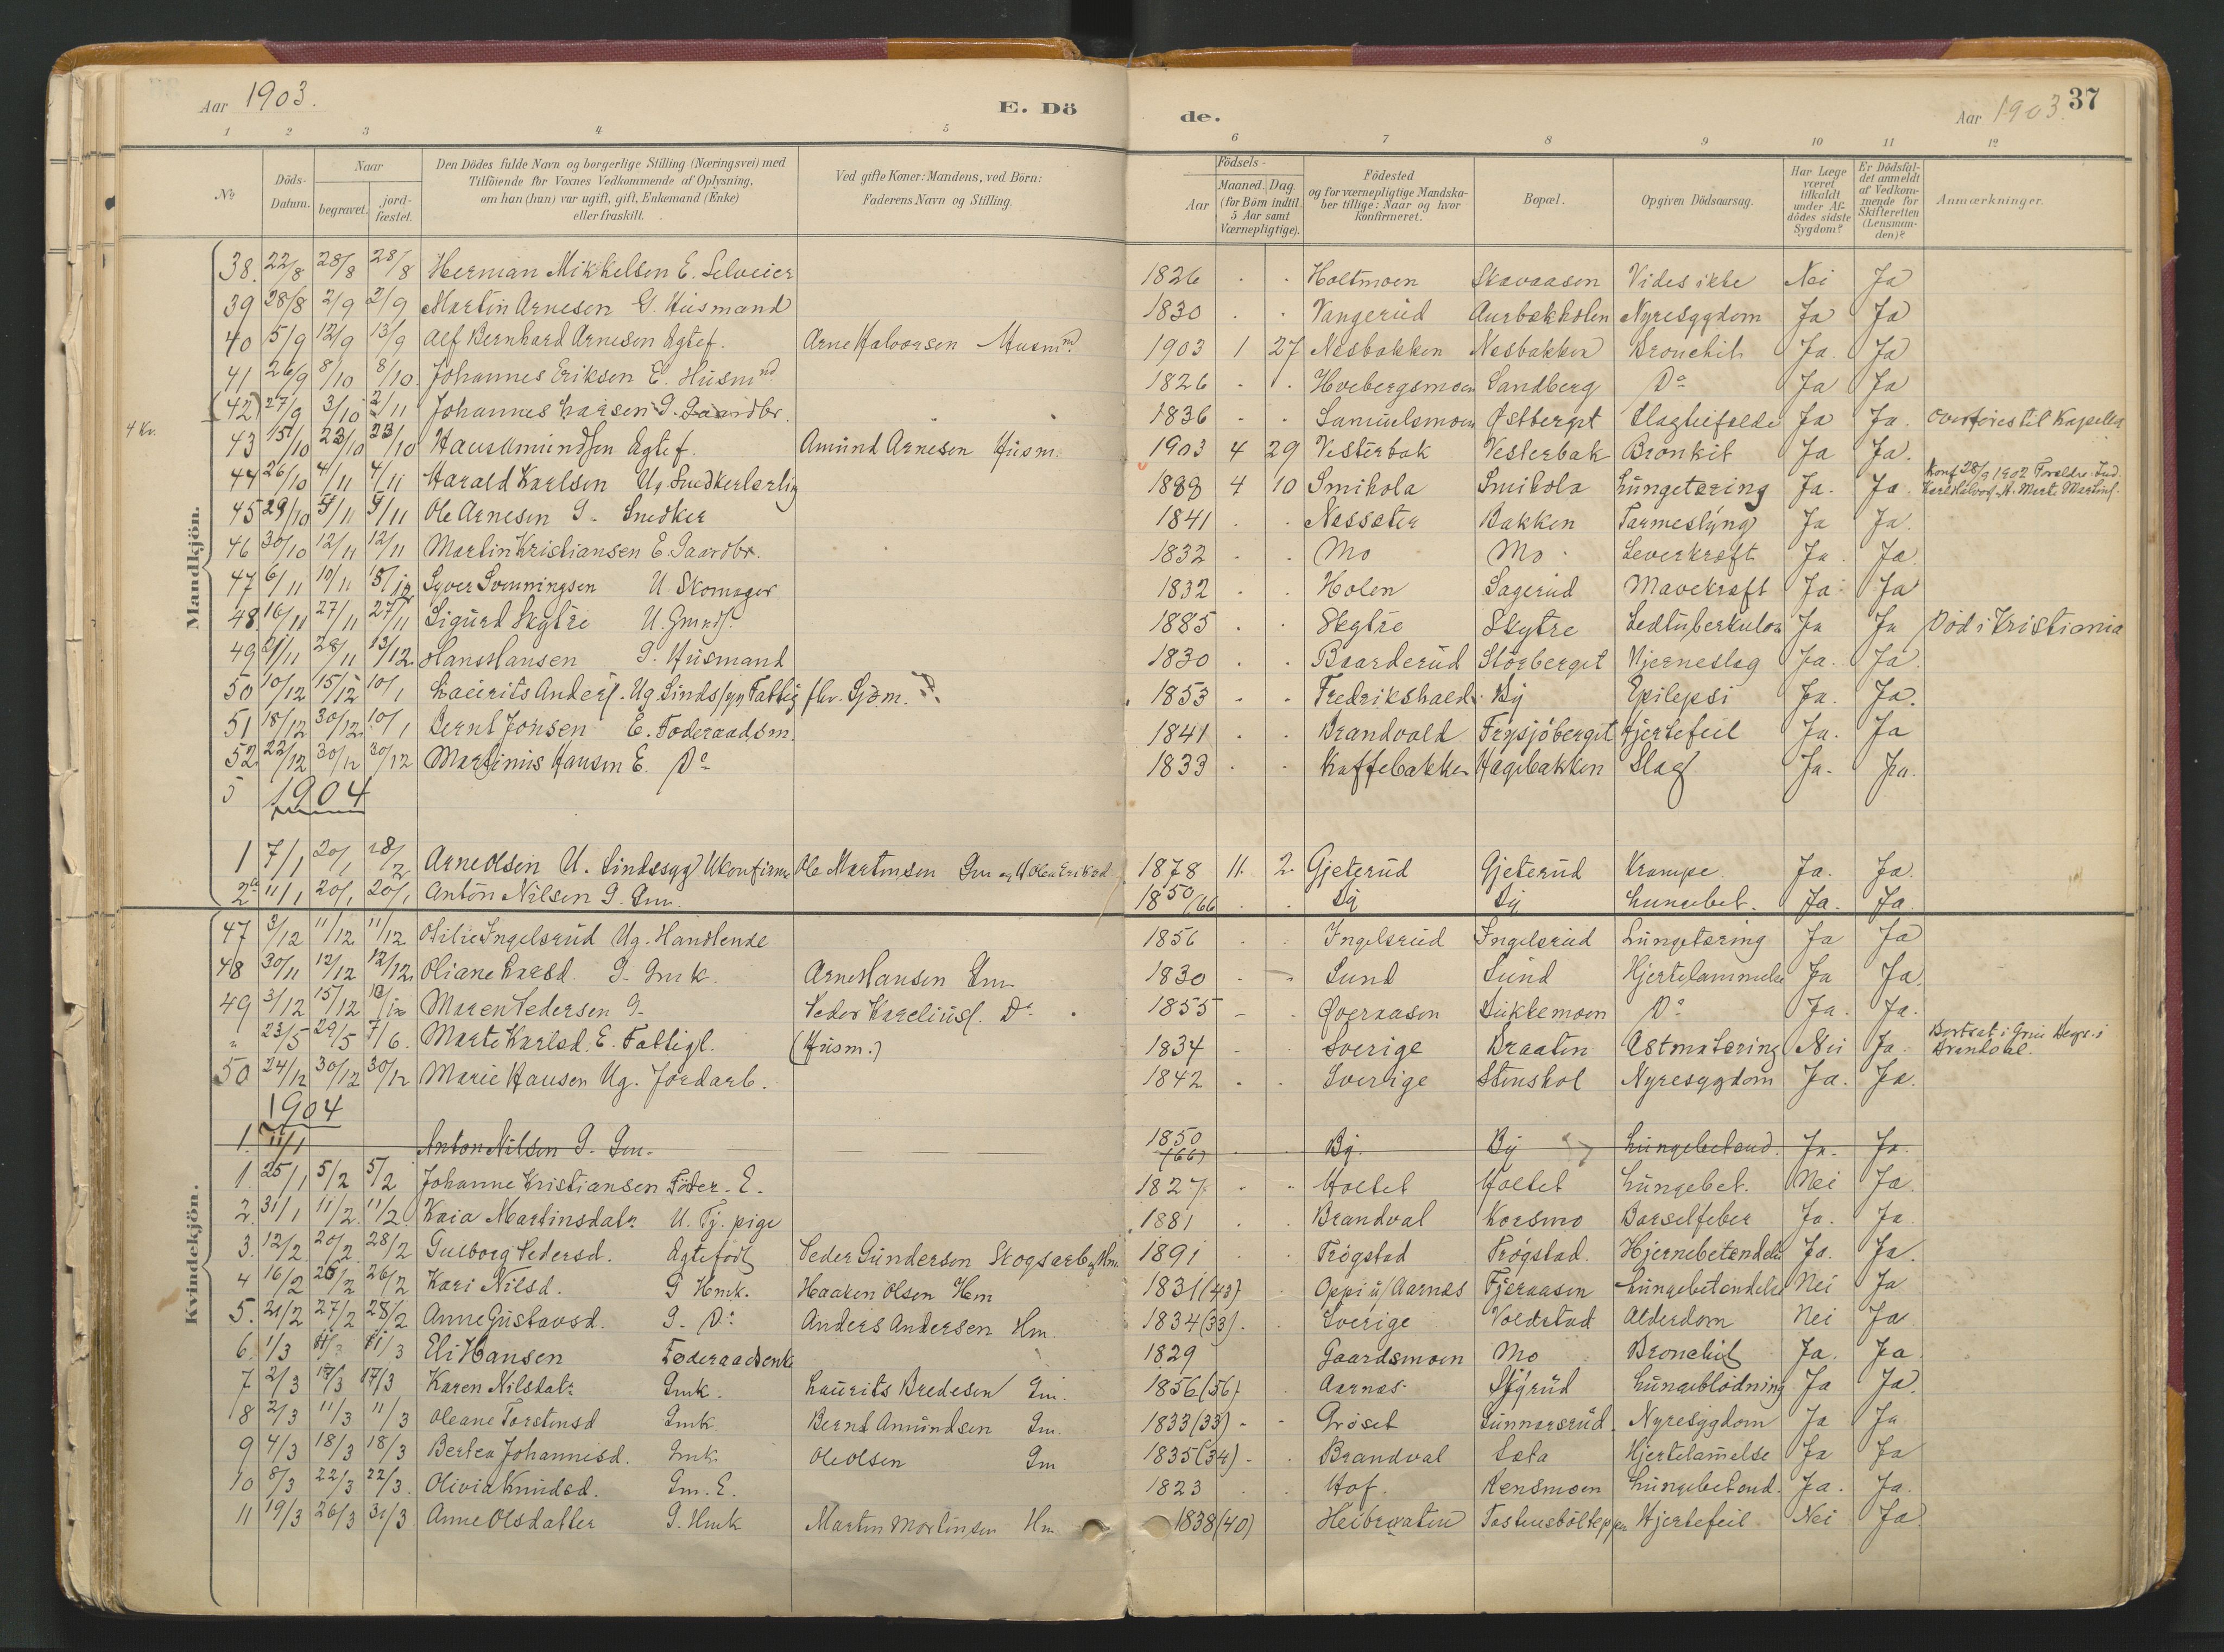 Aar 1903. E. Dö de. Aar 1903. 37
1 2 3 4 5 6 7 8 9 10 11 12
No. Döds-Datum. Naar begravet. jord-fæstet. Den Dödes fulde Navn og borgerlige Stilling (Næringsvei) med Tilföiende for Voxnes Vedkommende af Oplysning, om han (hun) var ugift, gift, Enkemand (Enke) eller fraskilt. Ved gifte Koner: Mandens, ved Börn: Faderens Navn og Stilling. Födsels- Aar Maaned. Dag. (for Börn indtil 5 Aar samt Værnepligtige). Födested og for værnepligtige Mandskaber tillige: Naar og hvor konfirmeret. Bopæl. Opgiven Dödsaarsag. Har Læge været tilkaldt under Afdödes sidste Sygdom? Er Dödsfaldet anmeldt af Vedkommende for Skifteretten (Lensmanden)? Anmærkninger.
Mandkjön.
38. 22/8 28/8 28/8 Herman Mikkelsen E. Selveier 1826 Holtmoen Skavaasen Vides ikke Nei Ja
39 28/8 2/9 2/9 Martin Arnesen G. Husmand 1830 Vangerud Aurbakholen Nyresygdom Ja Ja
40 5/9 12/9 13/9 Alf Bernhard Arnesen Egtef. Arne Halvorsen Husmd. 1903 1 27 Nesbakken Nesbakken Bronchit Ja. Ja
41 26/9 8/10 8/10 Johannes Eriksen E. Husmnd 1826 Hvebergsmoen Sandberg Do Ja Ja
(42) 27/9 3/10 2/11 Johannes Larsen G. Gaardbr. 1836 Samuelsmoen Østberget Slagtilfælde Ja Ja. Overføres til Kapellet
4 Kv.
43 15/10 23/10 23/10 Hans Amundsen Egtef. Amund Arnesen Husm. 1903 4 29 Vesterbak Vesterbak Bronkit Ja Ja.
44 26/10 4/11 4/11 Harald Karlsen Ug. Snedkerlærling 1888 4 10 Smikola Smikola Lungetæring Ja. Ja Konf 28/9 1902 Forældre: Ind.
45 29/10 5/11 5/11 Ole Arnesen G. Snedker 1841 Nessæter Bakken Tarmeslyng Ja Ja.
46 30/10 12/11 12/11 Martin Kristiansen E. Gaardbr. 1832 Mo Mo Leverkræft Ja. Ja
47 6/11 10/11 Syver Svenningsen U. Skomager 1832 Holen Sagerud Mavekræft Ja Ja
48. 16/11 27/11 27/11 Sigurd Skytre 1885 Skytre Skytre Ledtuberkulos Ja Ja Död i Kristiania
49 21/11 28/11 13/12. Hans Hansen G. Husmand 1830 Baarderud Störberget Hjerneslag Ja. Ja.
50 10/12 15/12 10/1 Laurits Anders. Ug. Sindssyg Fattig fhv. Sjöm. 1853 Fredrikshald By Epilepsi Ja. Ja.
51 18/12 30/12. 10/1 Bernt Jonsen E. Föderaadsm. 1841 Brandvold Frysjöberget Hjertefeil Ja. Ja
52. 22/12 30/12 30/12 Martinius Hansen E. Do 1833 Kaffebakken Hagebakken Slag Ja. Ja.
5 1904
1 7/1 20/1 28/2 Arne Olsen U. Sindssyg Ukonfirm. Ole Martinsen 1878 11. 2 Gjeterud Gjeterud Krampe. Ja. Ja.
2 11/1 20/1 20/1 Anton Nilsen G. Gm. 1850/66 By By Lungebet. Ja. Ja.
Kvindekjön.
47 3/12 11/12 11/12 Otilie Ingelsrud Ug. Handlende 1856 Ingelsrud Ingelsrud Lungetæring Ja Ja
48 30/11 12/12 12/12 Oliane Larsd. G. Gmk. Arne Hansen Gm 1830 Lund Lund Hjertelammelse Ja Ja.
49 3/12 15/12 Maren Pedersen G. Peder Kareliusf. Do 1855 Overaasen Dukkemoen Do Ja. Ja.
" 23/5 29/5 7/6. Marte Karlsd. E. Fattigl. (Husm.) 1834 Sverige Braaten Astma Tæring Nei Ja. Bortsat i Grue Begr. i Brandval.
50 24/12 30/12 30/12 Marie Hansen Ug. Jordarb. 1842 Sverige Stenshol Nyresygdom Ja. Ja.
1904
1. 11/1 Anton Nilsen G. Gm. 1850 (66) By. By Lungebetænd. Ja. Ja.
1. 25/1 5/2 5/2 Johanne Kristiansen Föder. E. 1827. Holtet Holtet Lungebet. Nei Ja.
2. 31/1 11/2. 11/2 Kaia Martinsdatr U. Tj. pige 1881 Brandval Korsmo Barselfeber Ja. Ja.
3. 12/2. 20/2. 28/2 Gulborg Pedersd. Egtefödt Peder Gundersen Skogsarb. 1891 Trögstad Trögstad. Hjernebetændelse Ja. Ja.
4 16/2 26/2 26/2 Kari Nilsd. G Hmk. Haaken Olsen Hm 1831(43) Oppi u/Aarnes Fjeraasen Lungebetændelse Nei Ja
5. 21/2 27/2 28/2 Anne Gustavsd. G. Do Anders Andersen Hm. 1834(33). Sverige Voldstad Alderdom Nei Ja
6. 1/3 11/3 11/3 Eli Hansen Föderaadsenke 1829 Gaardsmoen Mo Bronchit Ja. Ja
7 2/3 17/3 17/3 Karen Nilsdatr Gmk. Laurits Bredesen Gm. 1856(56) Aarnes Sjyrud Lungeblödning Ja Ja.
8 2/3 11/3 11/3 Oleane Torstensd Gmk. Bernt Amundsen Gm. 1833(33) Gröset Gunnarsrud. Nyresygdom Ja Ja
9 4/3 18/3 18/3 Bertea Johannesd. Gmk Ole Olsen Gm 1835(34) Brandval Læta Hjertelam̄else Ja Ja
10 8/3 22/3 22/3. Olivia Knudsd. Gm. E. 1823 Hof. Rensmoen Lungebetænd. Ja. Ja.
11 19/3 26/3 31/3 Anne Olsdatter G. Hmk Martin Mortinsen Hm 1838(40) Heibraaten Hjertefeil Nei Ja